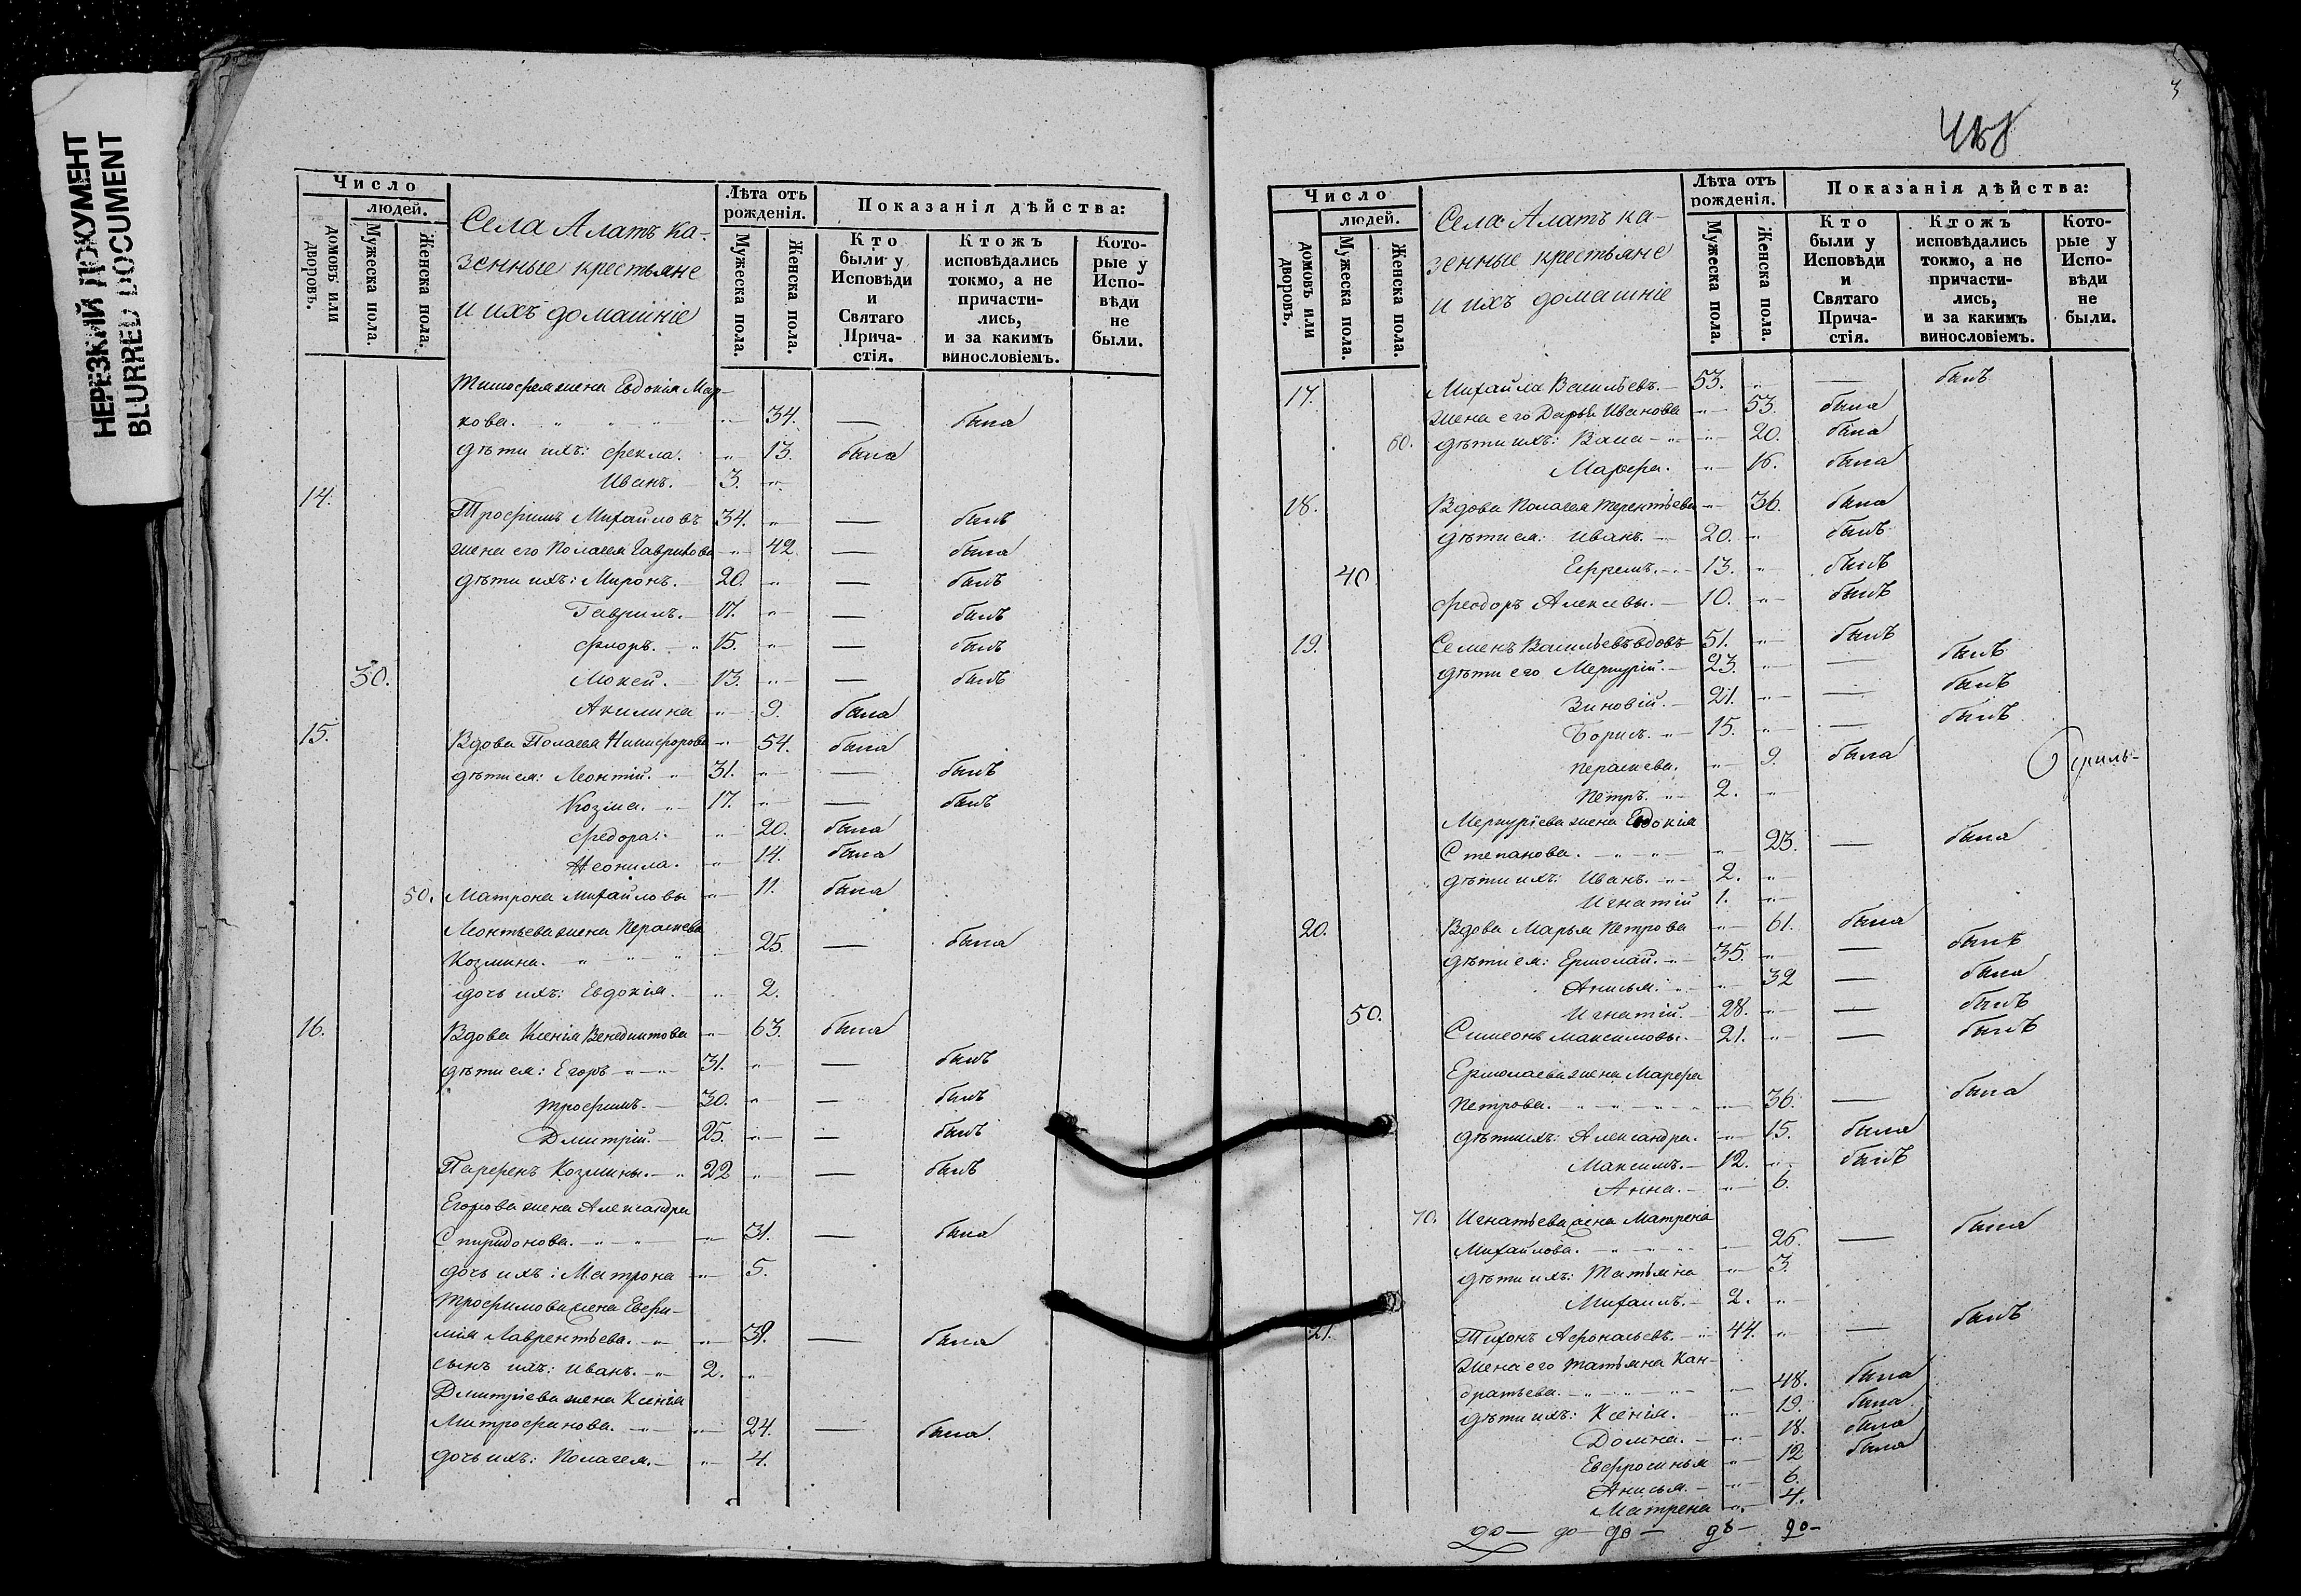 НЕРЕЗКИЙ ДОКУМЕНТ
BLURRED DOCUMENT
Число
людей.
домовъ или дворовъ.
Мужеска пола.
Женска пола.
Села Алатъ ка-
зенные крестьяне
и ихъ домашніе
Лѣта отъ рожденія.
Мужеска пола.
Женска пола.
Показанія дѣйства:
Кто были у Исповѣди и Святаго Причастія.
Ктожъ исповѣдались токмо, а не причасти-лись, и за какимъ винословіемъ.
Кото-рые у Испо-вѣди не были.
Тимофея жена Евдокія Мар-
кова. 34. — была
дѣти ихъ: Фекла. 13. была
Иванъ. 3.
14. Трофимъ Михайловъ 34. — былъ
жена его Полагея Гаврилова 42. — была
дѣти ихъ: Миронъ. 20. — былъ
Гаврилъ. 17. — былъ
Флоръ. 15. — былъ
30. Мокей. 13. — былъ
Акилина 9. была
15. Вдова Полагея Никифорова 54. была
дѣти ея: Леонтій. 31. — былъ
Козма. 17. — былъ
Федора. 20. была
Неонила. 14. была
50. Матрона Михайловы 11. была
Леонтьева жена Параскева
Козмина. 25. — была
дочь ихъ: Евдокія. 2.
16. Вдова Ксенія Венедиктова 63. была
дѣти ея: Егоръ 31. — былъ
Трофимъ. 30. — былъ
Дмитрій. 25. — былъ
Парфенъ Козмины. 22 — былъ
Егорова жена Александра
Спиридонова. 31. — была
дочь ихъ: Матрона 5.
Трофимова жена Евфи-
мія Лаврентьева. 31. — была
сынъ ихъ: Иванъ. 2.
Дмитріева жена Ксенія
Митрофанова. 24. — была.
дочь ихъ: Полагея. 4.
3
Число
людей.
домовъ или дворовъ.
Мужеска пола.
Женска пола.
Села Алатъ ка-
зенные крестьяне
и ихъ домашніе
Лѣта отъ рожденія.
Мужеска пола.
Женска пола.
Показанія дѣйства:
Кто были у Исповѣди и Святаго Прича-стія.
Ктожъ исповѣдались токмо, а не причасти-лись, и за какимъ винословіемъ.
Кото-рые у Испо-вѣди не были.
17. Михайла Васильевъ. 53. — былъ
жена его Дарья Иванова 53. была
60. дѣти ихъ: Васа 20. была
Марфа. 16. была
18. Вдова Полагея Терентьева 36. была
дѣти ея: Иванъ. 20. былъ
40 Ефремъ. 13. былъ
Феодоръ Алексевы. 10. былъ
19. Семенъ Васильевъ вдовъ 51. былъ
дѣти его Меркурій. 23. — былъ
Зиновій. 21. — былъ
Борисъ. 15. — былъ
Параскева. 9. была
Петръ. 2.
Меркуріева жена Евдокія
Степанова. 23. — была
дѣти ихъ: Иванъ. 2.
Игнатій 1.
20. Вдова Марья Петрова 61. была
дѣти ея: Ермолай. 35. — былъ
Анисья. 32 — была
50. Игнатій. 28. — былъ
Симеонъ Максимовы. 21. — былъ
Ермолаева жена Марфа
Петрова. 36. — была
дѣти ихъ: Александра. 15. была
Максимъ. 12. былъ
Анна. 6.
70. Игнатьева жена Матрена
Михайлова. 26. — была
дѣти ихъ: Татьяна 3.
Михаилъ. 2.
21. Тихонъ Афонасьевъ. 44. — былъ
жена его Татьяна Кан-
дратьева. 48. была
дѣти ихъ: Ксенія. 19. была
Домна. 18. была
Евфросинья 12 была
Анисья. 6.
Матрена 4.